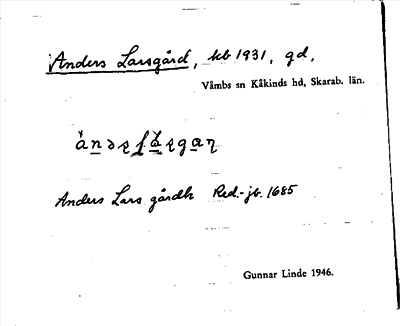 Anders Larsgård, kb 1931, gd.
Våmbs sn Kåkinds hd, Skarab. län.
Anders Lars gårdh Red.-jb. 1685
Gunnar Linde 1946.